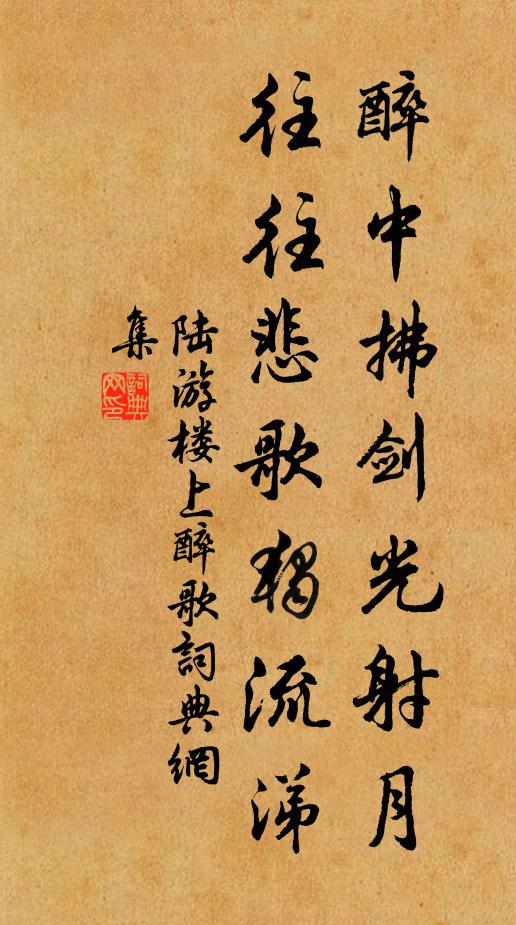 醉中拂剑光射月
往往悲歌独流涕
陆游楼上醉歌詞典網
集
詞典
网印